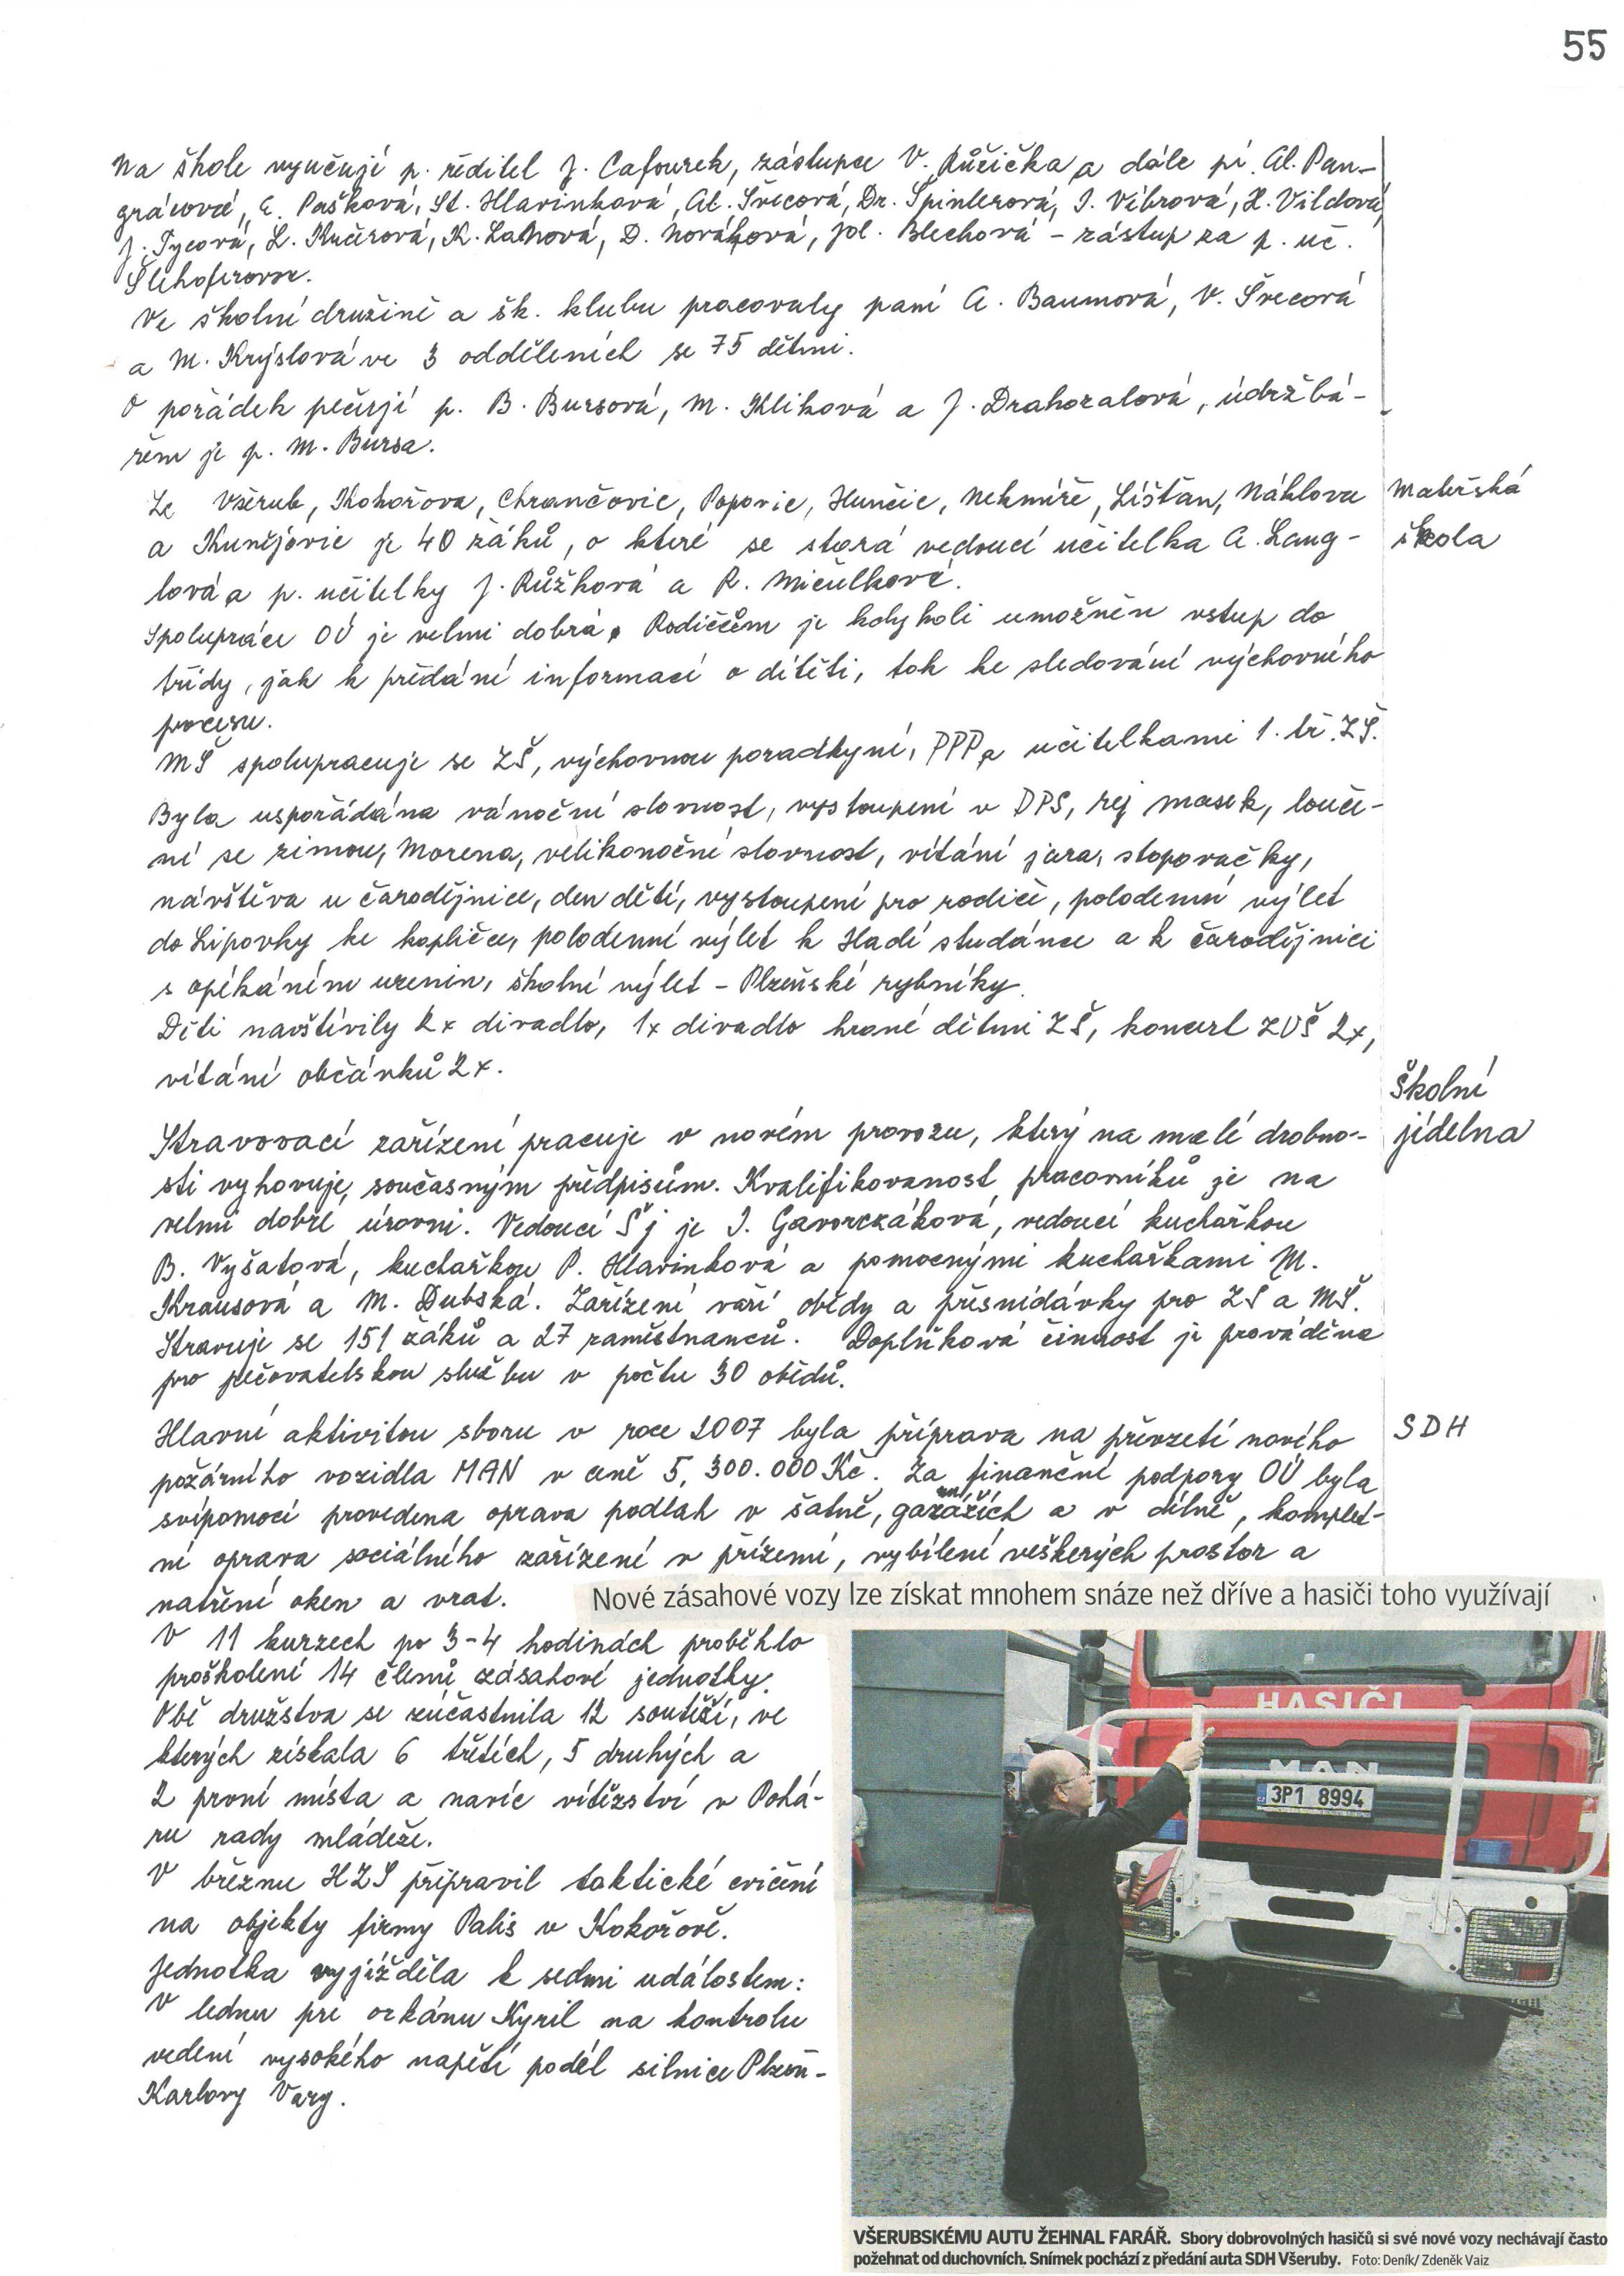 55
Na škole vyučují p. ředitel J. Cafourek, zástupce V. Růžička a dále pí. Al. Pan-
grácová, E. Pašková, St. Hlavinková, Al. Švecová, Dr. Špinlerová, I. Vébrová, H. Vildová,
J. Tycová, L. Kučerová, K. Lahová, D. Nováková, Jol. Blechová - zástup za p. uč.
Šlehoferovou.
Ve školní družině a šk. klubu pracovaly paní A. Baumová, V. Švecová
a M. Krýslová ve 3 odděleních se 75 dětmi.
O pořádek pečují p. B. Bursová, M. Kliková a J. Drahozalová, údržbá-
řem je p. M. Bursa.
Mateřská
škola
Ze Všerub, Kokořova, Chrančovic, Popovic, Hunčic, Nekmíře, Líšťan, Náklova
a Kunějovic je 40 žáků, o které se stará vedoucí učitelka A. Lang-
lová a p. učitelky J. Růžková a R. Mičulková.
Spolupráce OÚ je velmi dobrá. Rodičům je kdykoli umožněn vstup do
třídy, jak k předání informací o dítěti, tak ke sledování výchovného
procesu.
MŠ spolupracuje se ZŠ, výchovnou poradkyní, PPP a učitelkami 1. tř. ZŠ.
Byla uspořádána vánoční slavnost, vystoupení v DPS, rej masek, louče-
ní se zimou, Morena, velikonoční slavnost, vítání jara, stopovačky,
návštěva u čarodějnice, den dětí, vystoupení pro rodiče, polodenní výlet
do Lipovky ke kapličce, polodenní výlet k Hadí studánce a k čarodějnici
s opékáním uzenin, školní výlet - Plzeňské rybníky.
Děti navštívily 2x divadlo, 1x divadlo hrané dětmi ZŠ, koncert ZUŠ 2x,
vítání občánků 2x.
Školní
jídelna
Stravovací zařízení pracuje v novém provozu, který na malé drobno-
sti vyhovuje současným předpisům. Kvalifikovanost pracovníků je na
velmi dobré úrovni. Vedoucí ŠJ je I. Gavorczáková, vedoucí kuchařkou
B. Vyšatová, kuchařkou P. Hlavinková a pomocnými kuchařkami M.
Krausová a M. Dubská. Zařízení vaří obědy a přesnídávky pro ZŠ a MŠ.
Stravuje se 151 žáků a 27 zaměstnanců. Doplňková činnost je prováděna
pro pečovatelskou službu v počtu 30 obědů.
SDH
Hlavní aktivitou sboru v roce 2007 byla příprava na převzetí nového
požárního vozidla MAN v ceně 5, 300.000 Kč. Za finanční podpory OÚ byla
svépomocí provedena oprava podlah v šatně, garážích a v dílně, komplet-
ní oprava sociálního zařízení v přízemí, vybílení veškerých prostor a
natření oken a vrat.
V 11 kurzech po 3-4 hodinách proběhlo
proškolení 14 členů zásahové jednotky.
Obě družstva se zúčastnila 12 soutěží, ve
kterých získala 6 třetích, 5 druhých a
2 první místa a navíc vítězství v Pohá-
ru rady mládeže.
V březnu HZS připravil taktické cvičení
na objekty firmy Palis v Kokořově.
Jednotka vyjížděla k sedmi událostem:
V lednu při orkánu Kyril na kontrolu
vedení vysokého napětí podél silnice Plzeň-
Karlovy Vary.
Nové zásahové vozy lze získat mnohem snáze než dříve a hasiči toho využívají
HASIČI
MAN
3P1 8994
VŠERUBSKÉMU AUTU ŽEHNAL FARÁŘ. Sbory dobrovolných hasičů si své nové vozy nechávají často
požehnat od duchovních. Snímek pochází z předání auta SDH Všeruby. Foto: Deník/ Zdeněk Vaiz